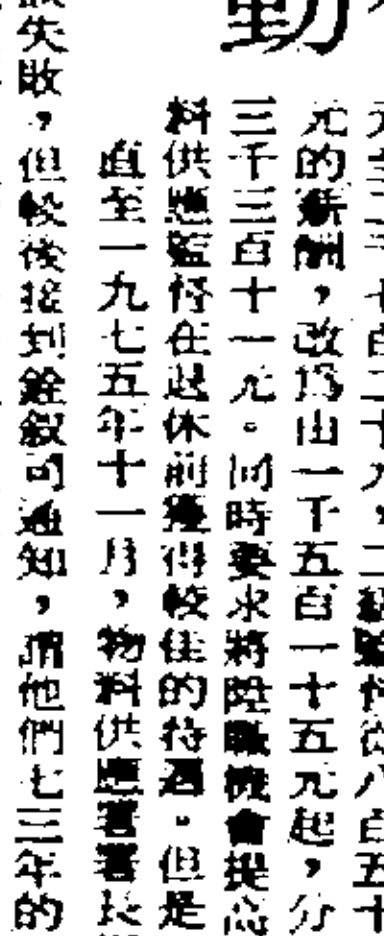 動
元的薪酬，改爲由一千五百一十五元起，分
三千三百十一元。同時要求將陞職機會提高
料供應監督在退休前獲得較佳的待遇。但是
直至一九七五年十一月，物料供應署署長
失敗，但較後接到銓叙司通知，謂他們七三年的